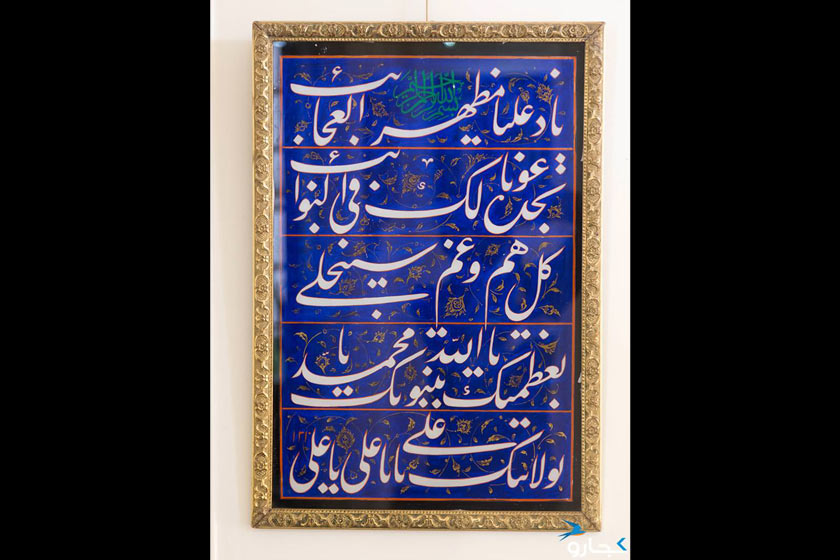 بسم الله الرحمن الرحیم
ناد علیا مظهر العجائب
تجده عونا لک فی النوائب
کل هم و غم سینجلی
بعظمتک یا الله بنبوتک یا محمد
بولایتک یا علی یا علی یا علی
کجارو